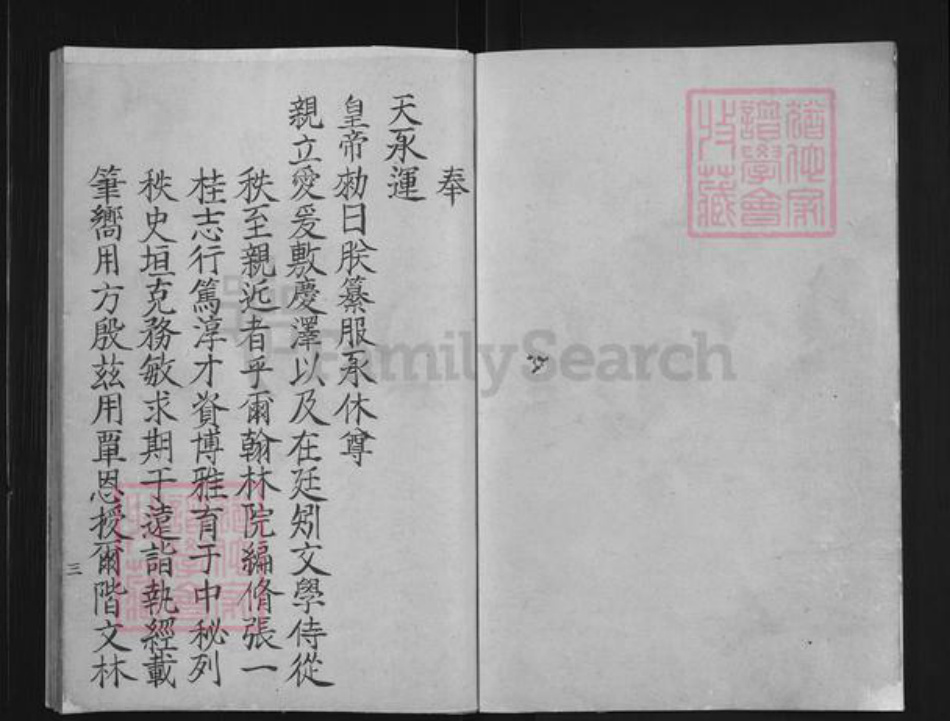 奉
天承運
皇帝勑曰朕纂服承休尊
親立愛爰敷慶澤以及在廷矧文學侍從
秩至親近者乎爾翰林院編脩張一
桂志行篤淳才資博雅育于中秘列
秩史垣克務敏求期于遠詣執經載
筆嚮用方殷茲用覃恩授爾階文林
三
FamilySearch